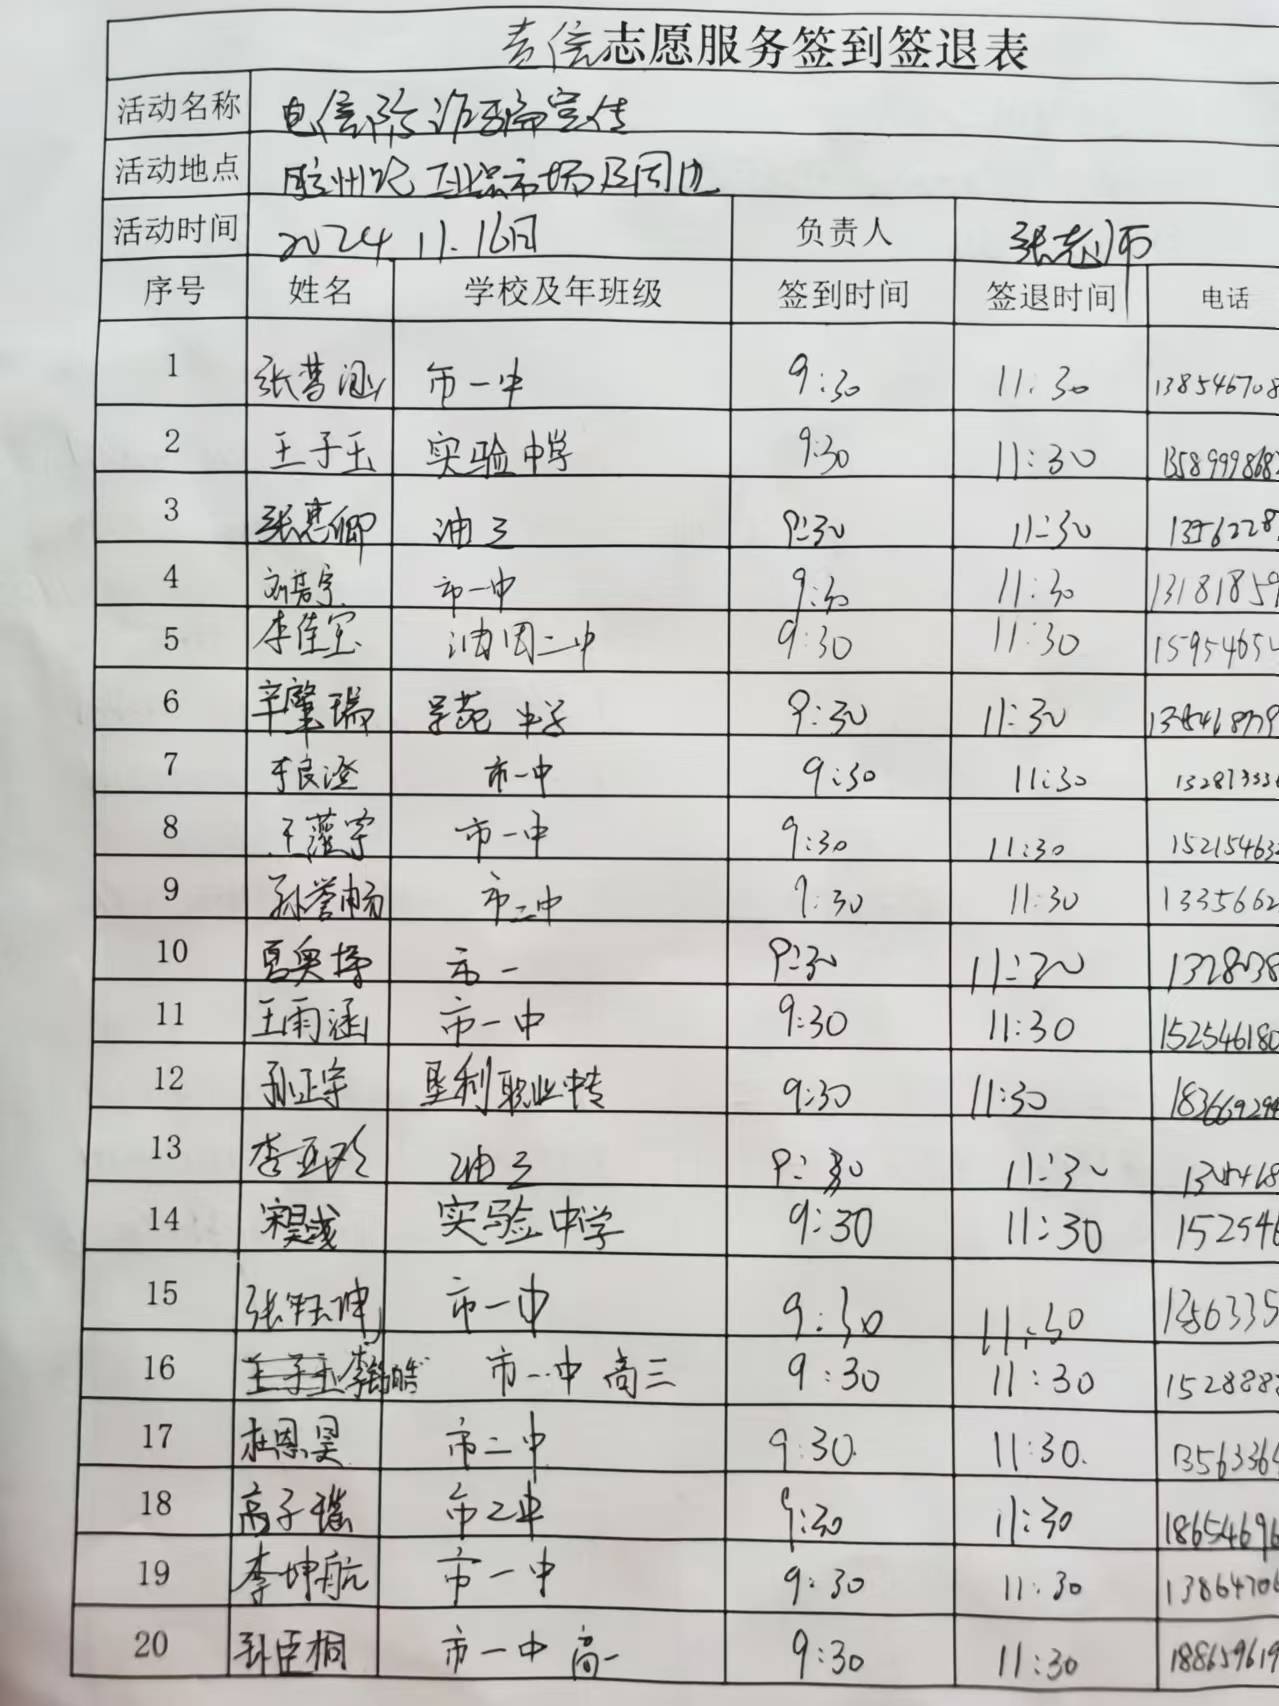 志愿服务签到签退表
活动名称 电信防诈骗宣传
活动地点 胶州路工业品市场及周边
活动时间 2024.11.16日 负责人 张老师
序号 姓名 学校及年班级 签到时间 签退时间 电话
1 市一中 9:30 11:30 138546708
2 王子玉 实验中学 9:30 11:30 135899986
3 张惠卿 油三 9:30 11:30 1356228
4 市一中 9:30 11:30 13181859
5 李佳宝 油田二中 9:30 11:30 15954654
6 辛肇瑞 学苑中学 9:30 11:30
7 于良澄 市一中 9:30 11:30
8 王蕴宇 市一中 9:30 11:30 15215463
9 孙誉畅 市二中 9:30 11:30 1335662
10 市一 9:30 11:30
11 王雨涵 市一中 9:30 11:30 152546180
12 孙正宇 垦利职业中专 9:30 11:30
13 李亚玲 油三 9:30 11:30
14 实验中学 9:30 11:30 152546
15 张钰坤 市一中 9:30 11:30
16 市一中 高三 9:30 11:30 1528888
17 杜恩昊 市二中 9:30. 11:30. 1356336
18 高子瑞 市二中 9:30 11:30 18654696
19 李坤航 市一中 9:30 11:30 13864706
20 孙臣桐 市一中 高一 9:30 11:30 188659619